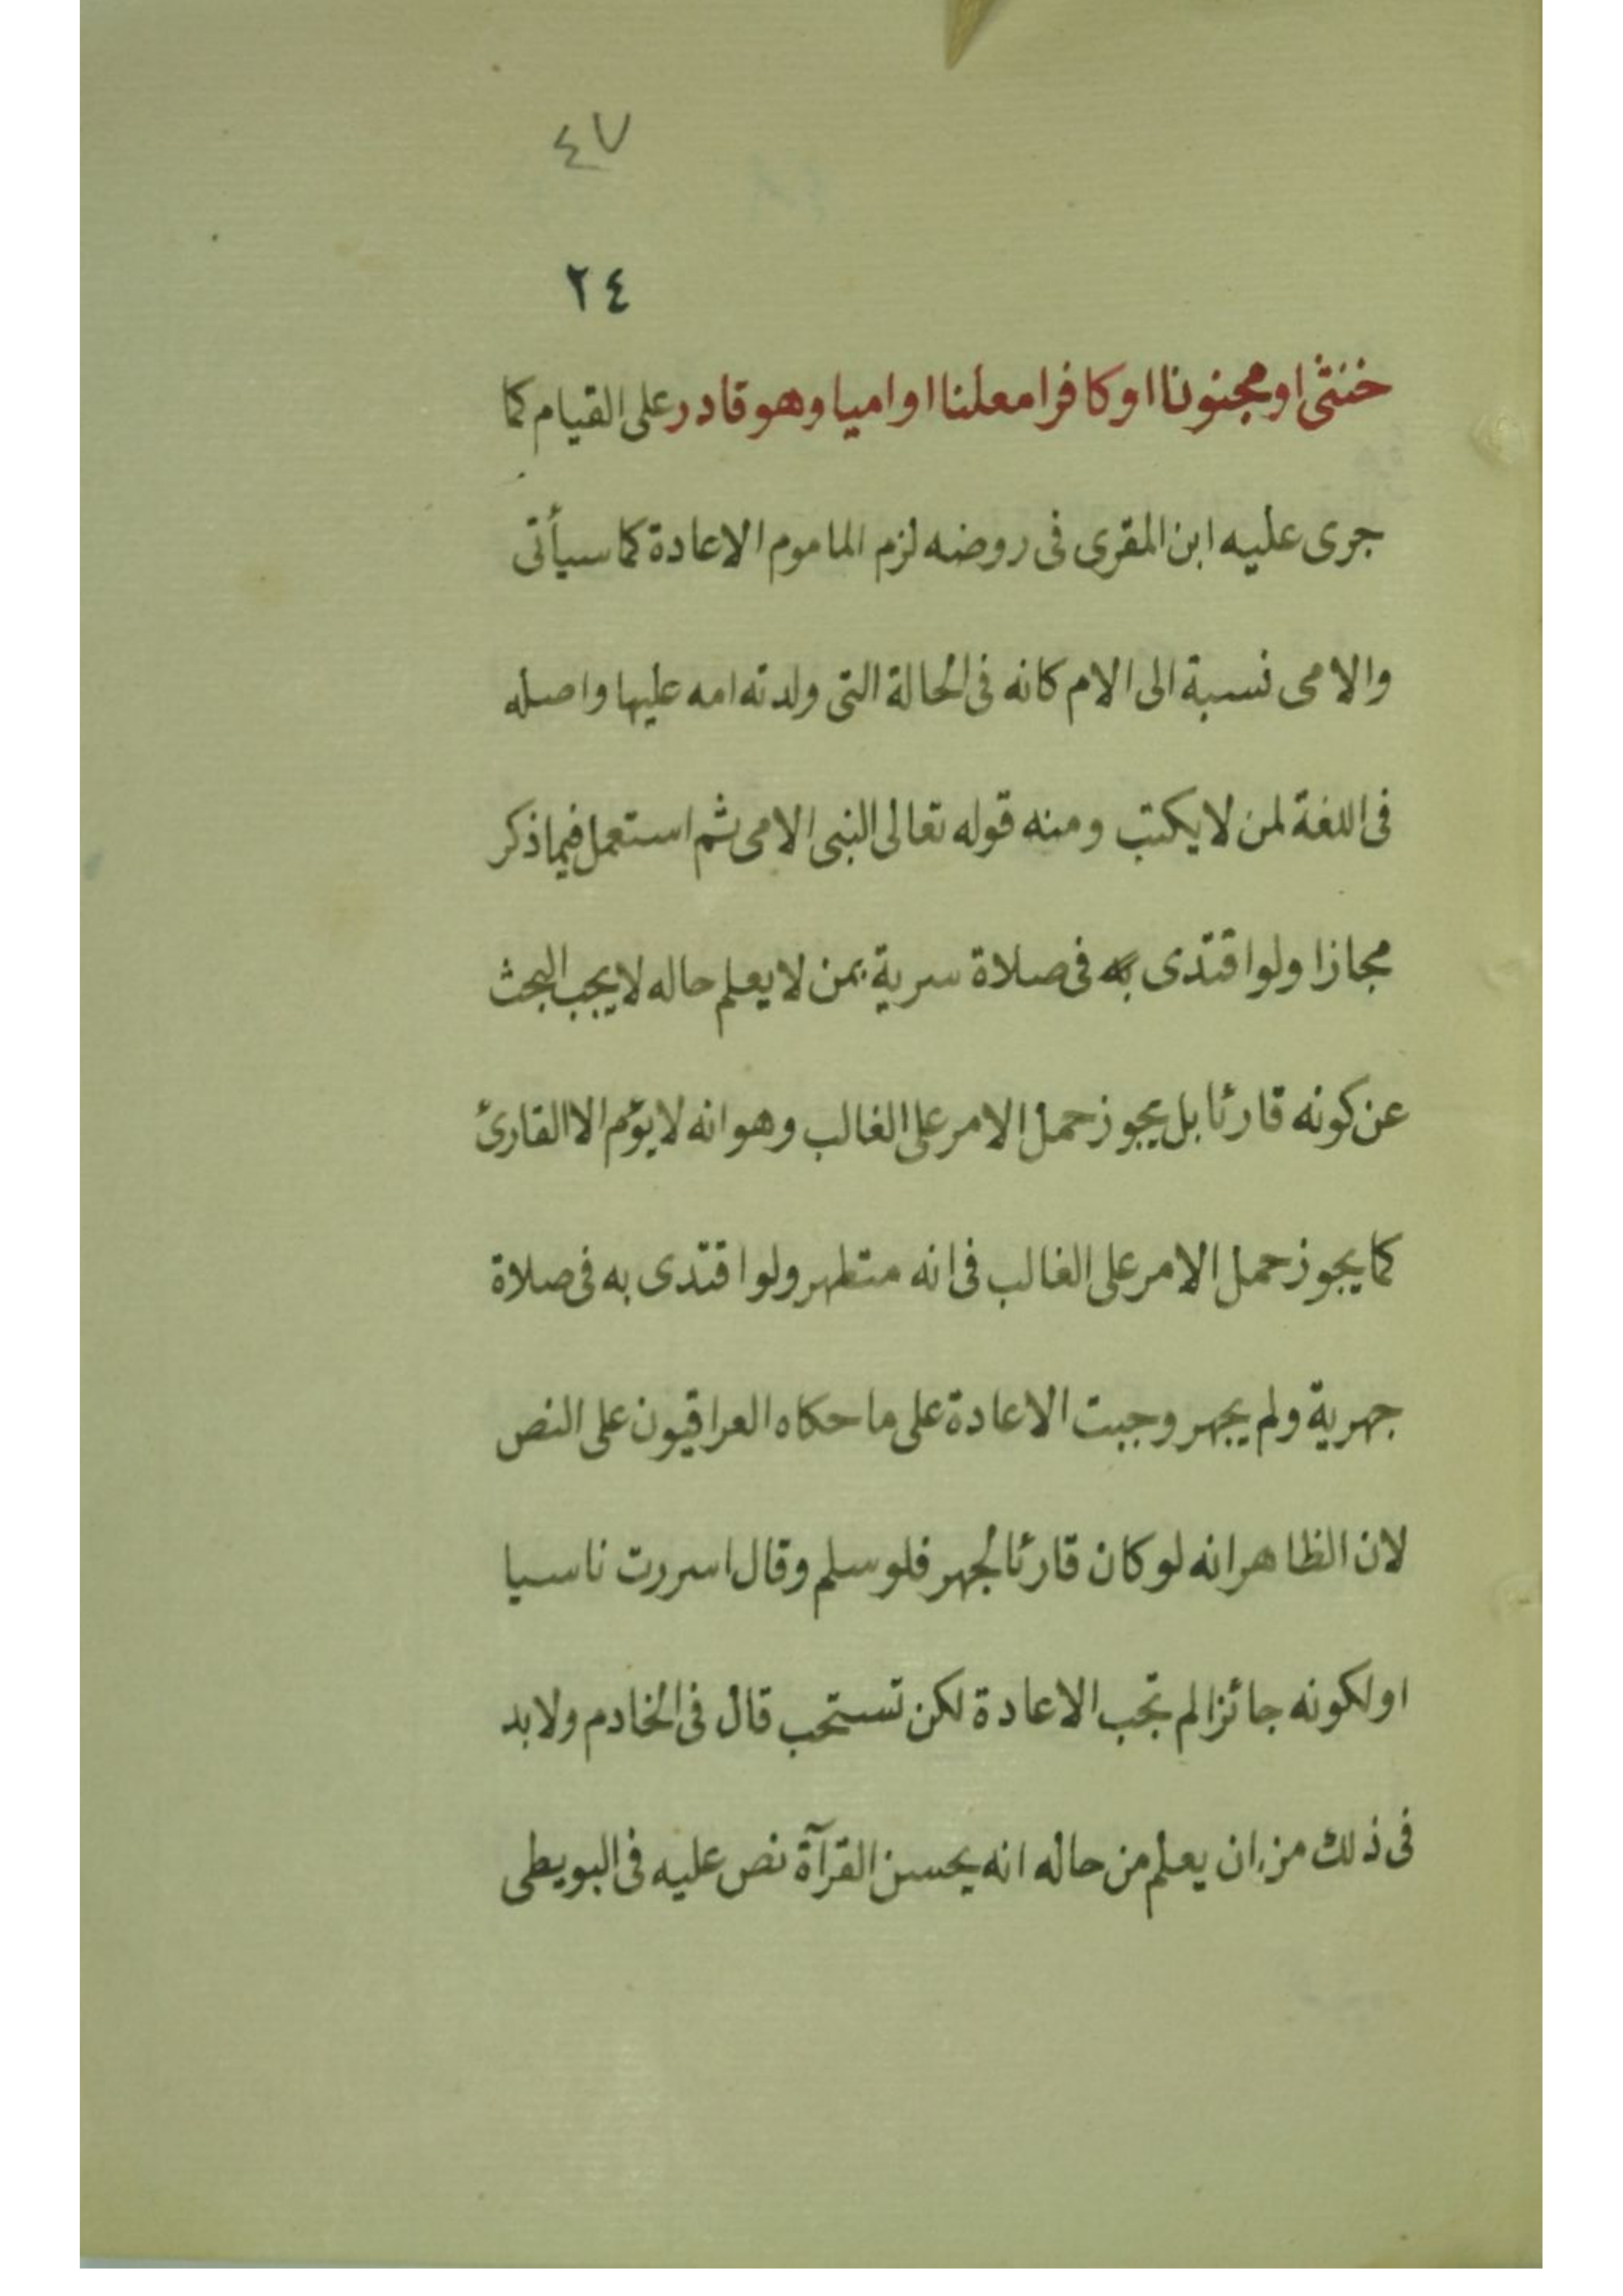 ٤٧
٢٤
خنثى او مجنونا او كافرا معلنا او اميا وهو قادر على القيام كما
جرى عليه ابن المقرى فى روضه لزم الماموم الاعادة كما سيأتى
والامى نسبة الى الام كانه فى الحالة التى ولدته امه عليها واصله
فى اللغة لمن لا يكتب ومنه قوله تعالى النبى الامى ثم استعمل فيما ذكر
مجازا ولو اقتدى به فى صلاة سرية بمن لا يعلم حاله لا يجب البحث
عن كونه قارئا بل يجوز حمل الامر على الغالب وهو انه لا يؤم الا القارئ
كما يجوز حمل الامر على الغالب فى انه متطهر ولو اقتدى به فى صلاة
جهرية ولم يجهر وجبت الاعادة على ما حكاه العراقيون على النص
لان الظاهر انه لو كان قارئا لجهر فلو سلم وقال اسررت ناسيا
او لكونه جائزا لم تجب الاعادة لكن تستحب قال فى الخادم ولا بد
فى ذلك من ان يعلم من حاله انه يحسن القرآة نص عليه فى البويطى